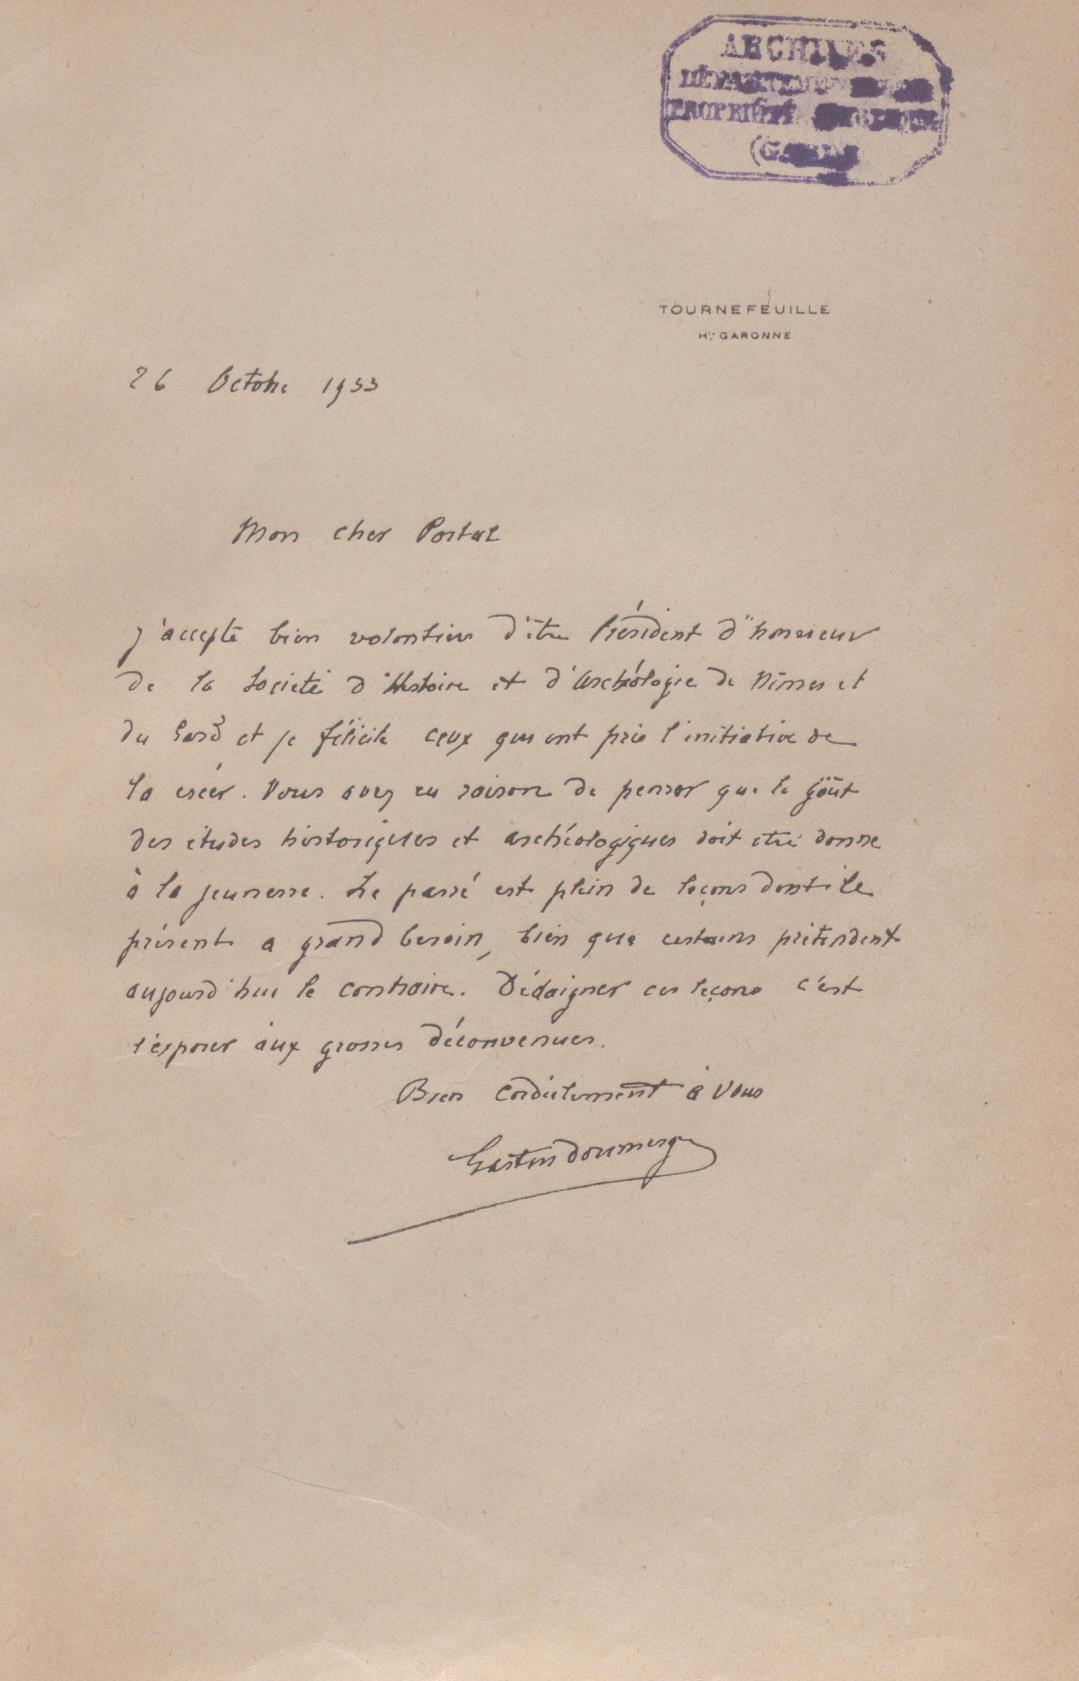 ARCHIVES
DÉPARTEMENTALES
PROPRIÉTÉ PUBLIQUE
(GARD)
TOURNEFEUILLE
Hte GARONNE
26 Octobre 1933
Mon cher Portal
J'accepte bien volontiers d'être Président d'honneur
de la Société d'Histoire et d'Archéologie de Nîmes et
du Gard et je félicite ceux qui ont pris l'initiative de
la créer. Vous avez eu raison de penser que le goût
des études historiques et archéologiques doit être donné
à la jeunesse. Le passé est plein de leçons dont le
présent a grand besoin, bien que certains prétendent
aujourd'hui le contraire. Dédaigner ces leçons c'est
s'exposer aux grosses déconvenues.
Bien cordialement à vous
Gaston Doumergue